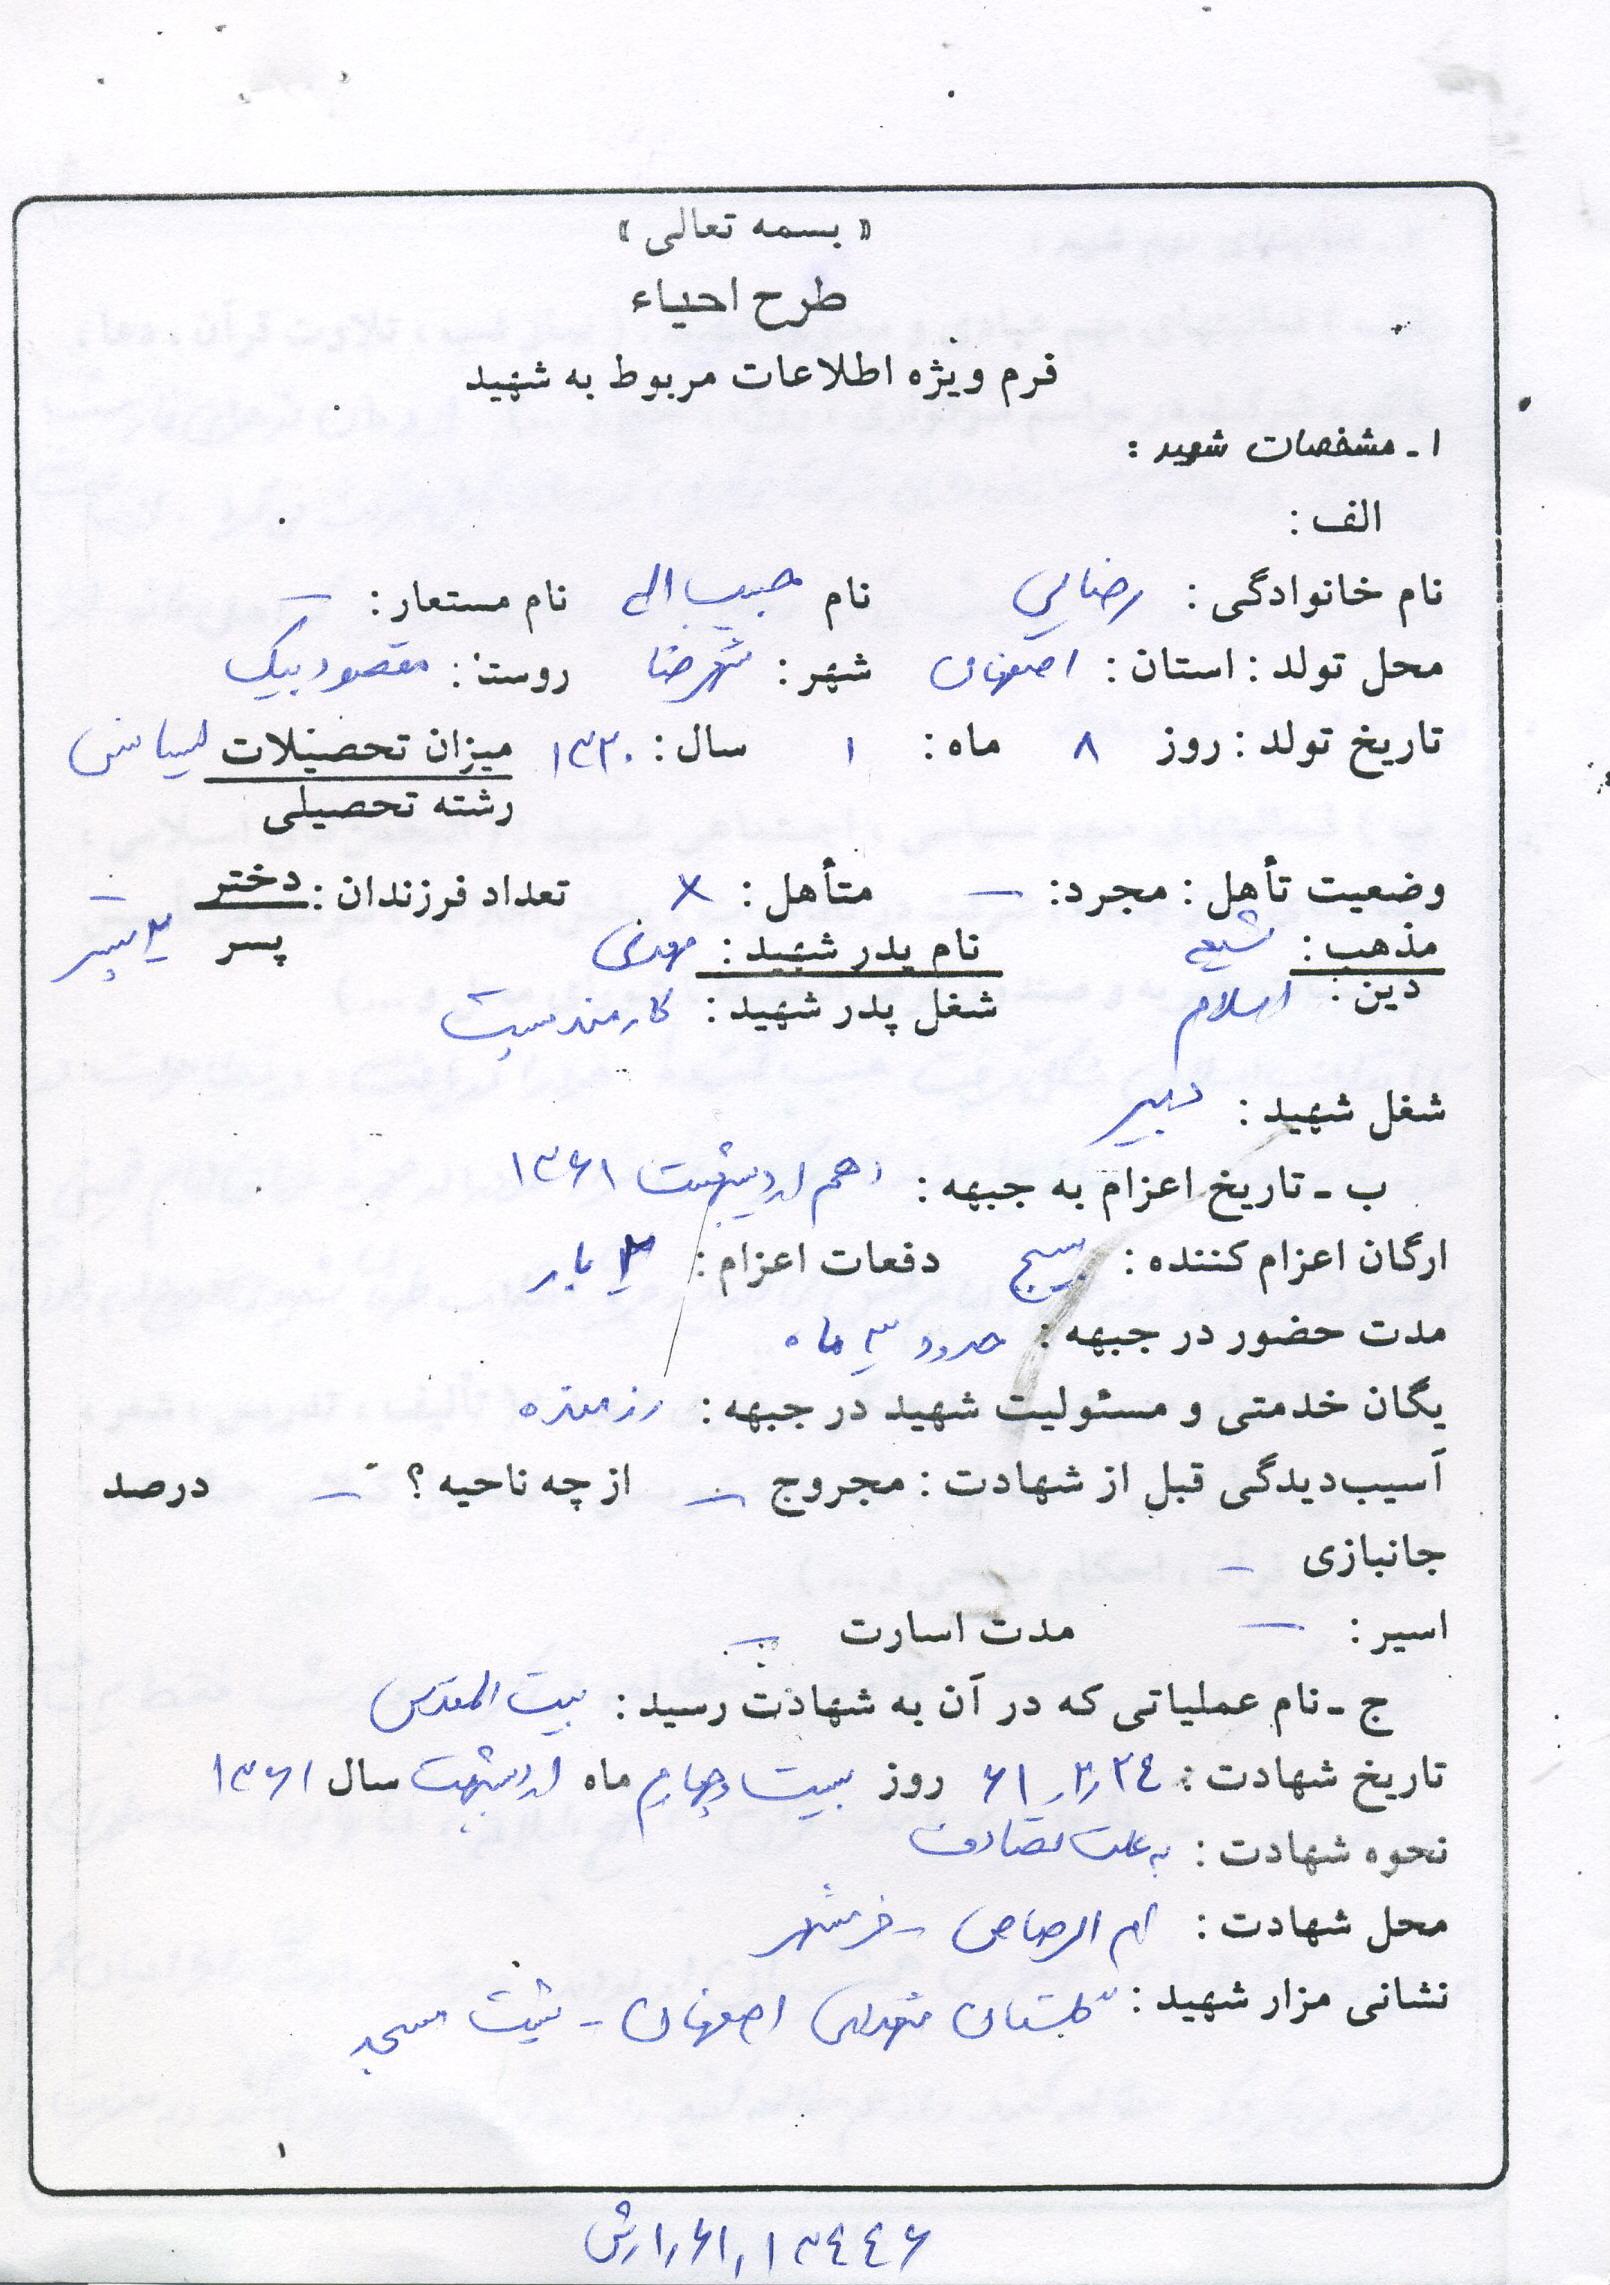 « بسمه تعالی »
طرح احیاء
فرم ویژه اطلاعات مربوط به شهید
۱ـ مشخصات شهید :
الف :
نام خانوادگی : رضایی نام حبیب اله نام مستعار : —
محل تولد : استان : اصفهان شهر : شهرضا روستا : مقصود بیک
تاریخ تولد : روز ۸ ماه : ۱ سال : ۱۳۳۰ میزان تحصیلات لیسانس
رشته تحصیلی
وضعیت تأهل : مجرد : — متأهل : × تعداد فرزندان : دختر —
پسر ۲ پسر
مذهب : شیعه نام پدر شهید : مهدی
دین : اسلام شغل پدر شهید : کارمند
شغل شهید : دبیر
ب ـ تاریخ اعزام به جبهه : دهم اردیبهشت ۱۳۶۱
ارگان اعزام کننده : بسیج دفعات اعزام : ۲ بار
مدت حضور در جبهه : حدود ۳ ماه
یگان خدمتی و مسئولیت شهید در جبهه : رزمنده
آسیب‌دیدگی قبل از شهادت : مجروح — از چه ناحیه ؟ — درصد
جانبازی —
اسیر : — مدت اسارت —
ج ـ نام عملیاتی که در آن به شهادت رسید : بیت المقدس
تاریخ شهادت : ۶۱٫۲٫۲٤ روز بیست و چهارم ماه اردیبهشت سال ۱۳۶۱
نحوه شهادت : به علت تصادف
محل شهادت : ام الرصاص - خرمشهر
نشانی مزار شهید : گلستان شهدای اصفهان - پشت مسجد
۱
۱۳٤٤۶